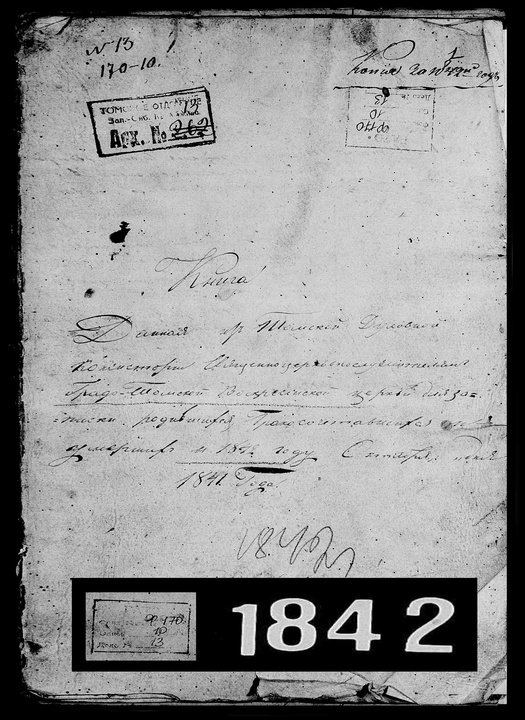 № 13
170-10.
Копия за 1842 годъ
ТОМСКОЕ ОТД.
Зап.-Сиб.
Арх. № 262
Ф 170
10
13
Книга
Данная изъ Томской Духовной
Консисторіи Священноцерковнослужителямъ
Градо-Томской Воскресенской церкви для за=
писки родившихся, бракосочетавшихся и
умершихъ въ 1842 году Октября дня
1841 Года.
1842
Ф 170
10
13
1842